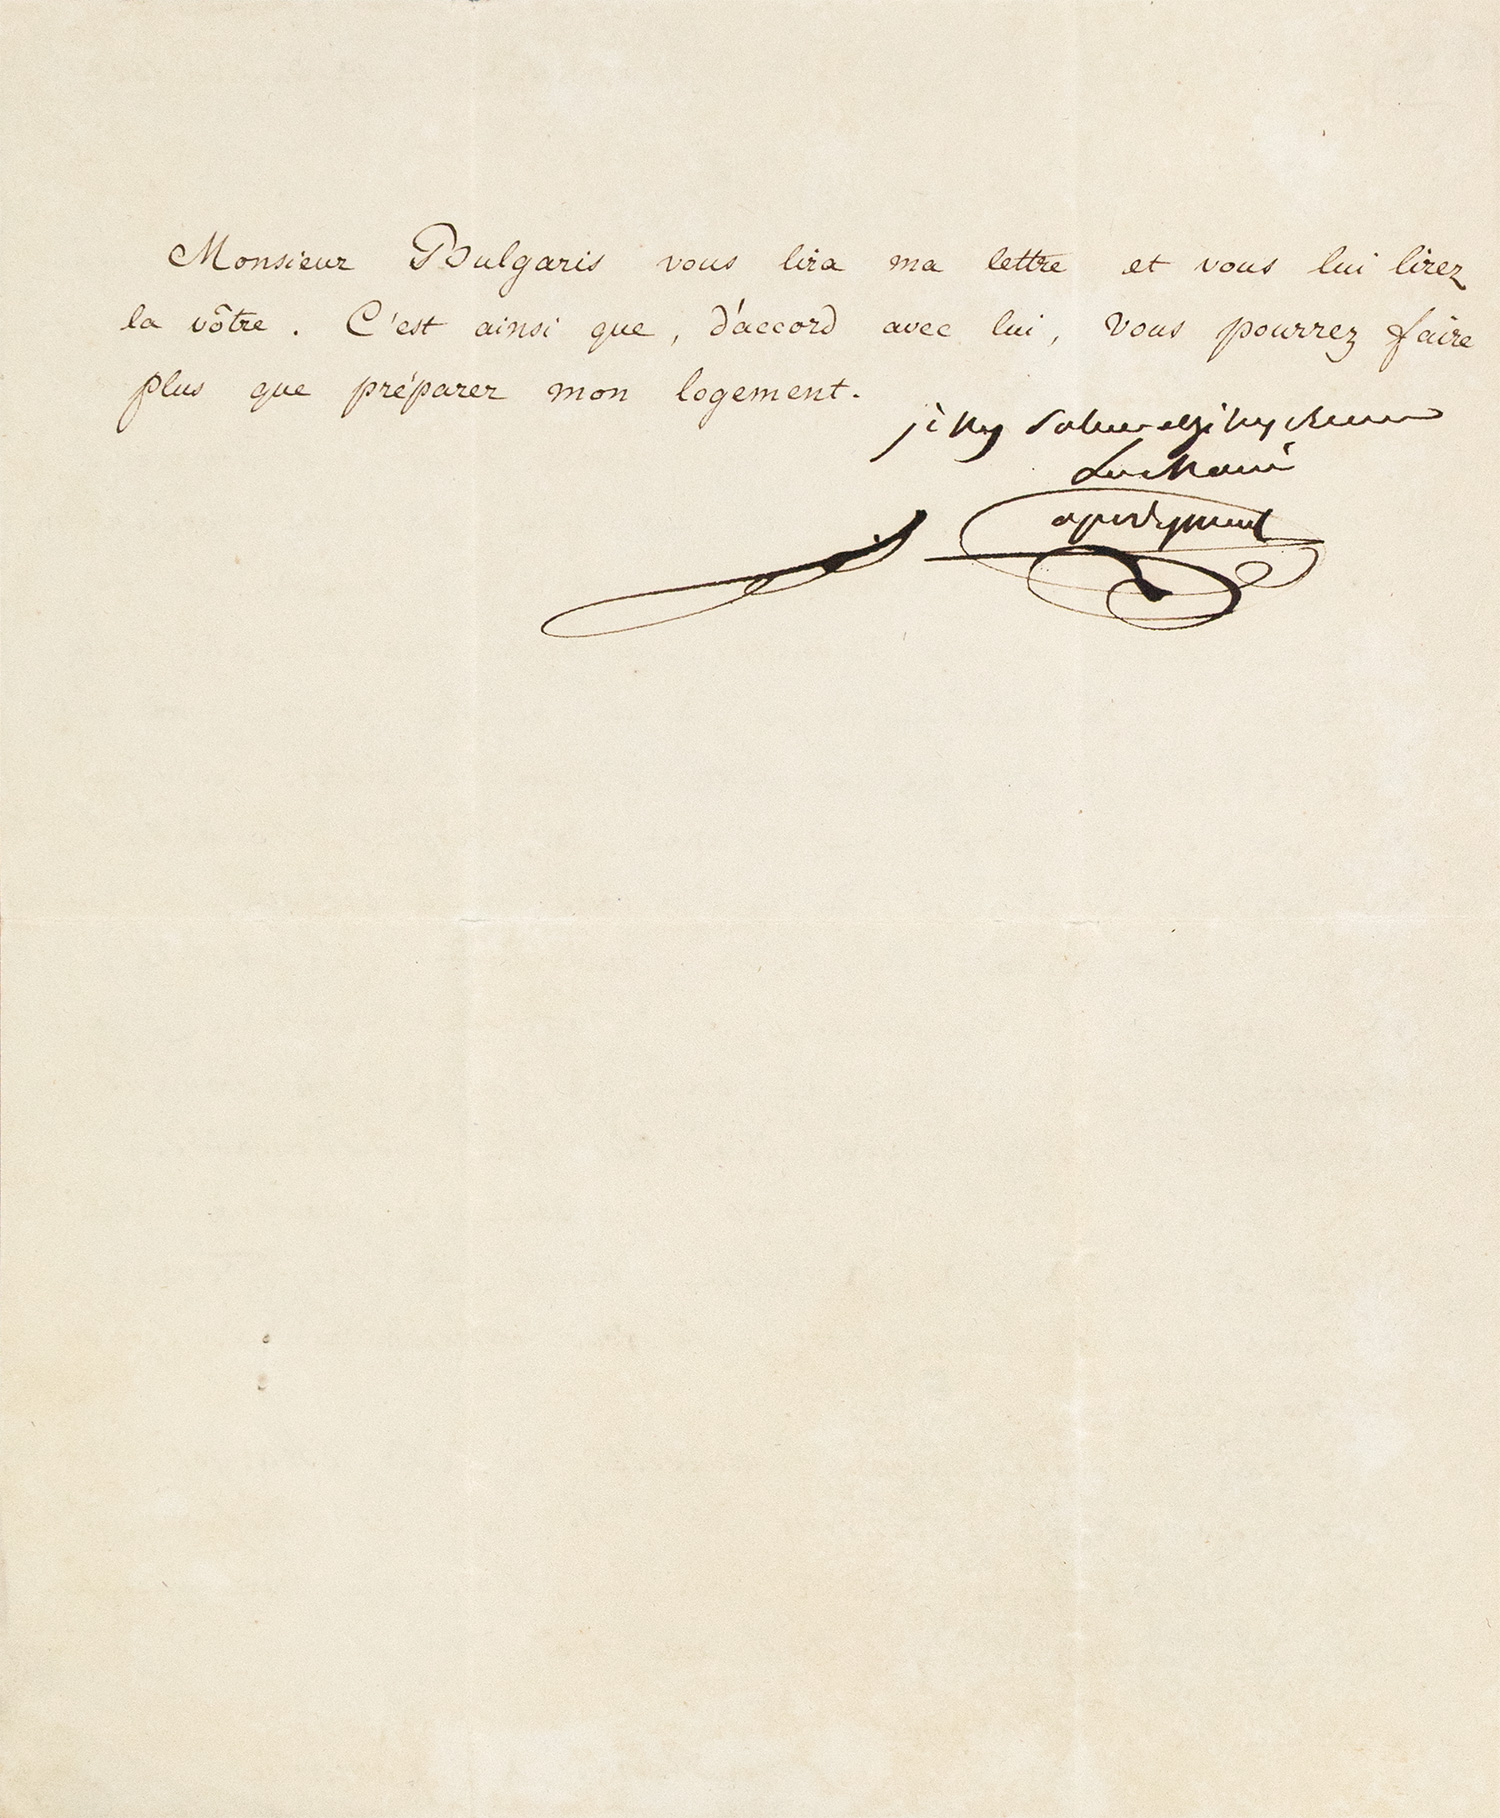 Monsieur Bulgaris vous lira ma lettre et vous lui lirez
la vôtre. C'est ainsi que, d'accord avec lui, vous pourrez faire
plus que préparer mon logement.